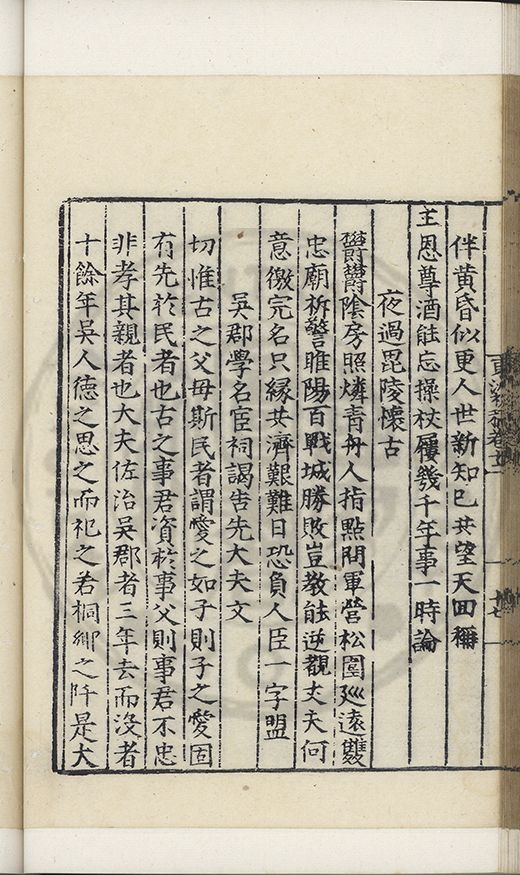 伴黃昏似更人世新知已共望天回稱
主恩尊酒能忘操杖屨幾千年事一時論
夜過毘陵懷古
欝欝陰房照燐青舟人指點問軍營松圍廵遠雙
忠廟柝警睢陽百戰城勝敗豈教能逆覩丈夫何
意徼完名只緣共濟艱難日恐負人臣一字盟
吳郡學名宦祠謁告先大夫文
切惟古之父毋斯民者謂愛之如子則子之愛固
有先於民者也古之事君資於事父則事君不忠
非孝其親者也大夫佐治吳郡者三年去而沒者
十餘年吳人德之思之而祀之若桐鄉之阡是大